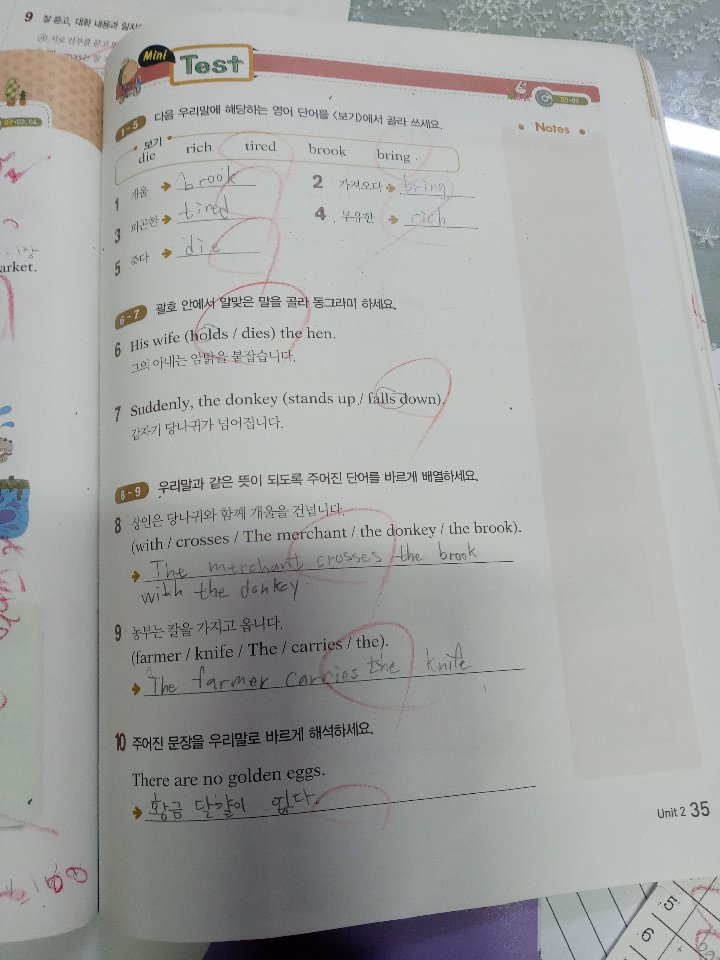 9 잘 듣고, 대화 내용과 일치
Mini Test
1~5 다음 우리말에 해당하는 영어 단어를 <보기>에서 골라 쓰세요.
Notes
보기
die rich tired brook bring
1 개울 brook
2 가져오다 bring
3 피곤한 tired
4 부유한 rich
5 죽다 die
6~7 괄호 안에서 알맞은 말을 골라 동그라미 하세요.
6 His wife (holds / dies) the hen.
그의 아내는 암탉을 붙잡습니다.
7 Suddenly, the donkey (stands up / falls down).
갑자기 당나귀가 넘어집니다.
8~9 우리말과 같은 뜻이 되도록 주어진 단어를 바르게 배열하세요.
8 상인은 당나귀와 함께 개울을 건넙니다.
(with / crosses / The merchant / the donkey / the brook).
The merchant crosses the brook
with the donkey.
9 농부는 칼을 가지고 옵니다.
(farmer / knife / The / carries / the).
The farmer carries the knife
10 주어진 문장을 우리말로 바르게 해석하세요.
There are no golden eggs.
황금 달걀이 없다.
Unit 2 35
arket.
5
6